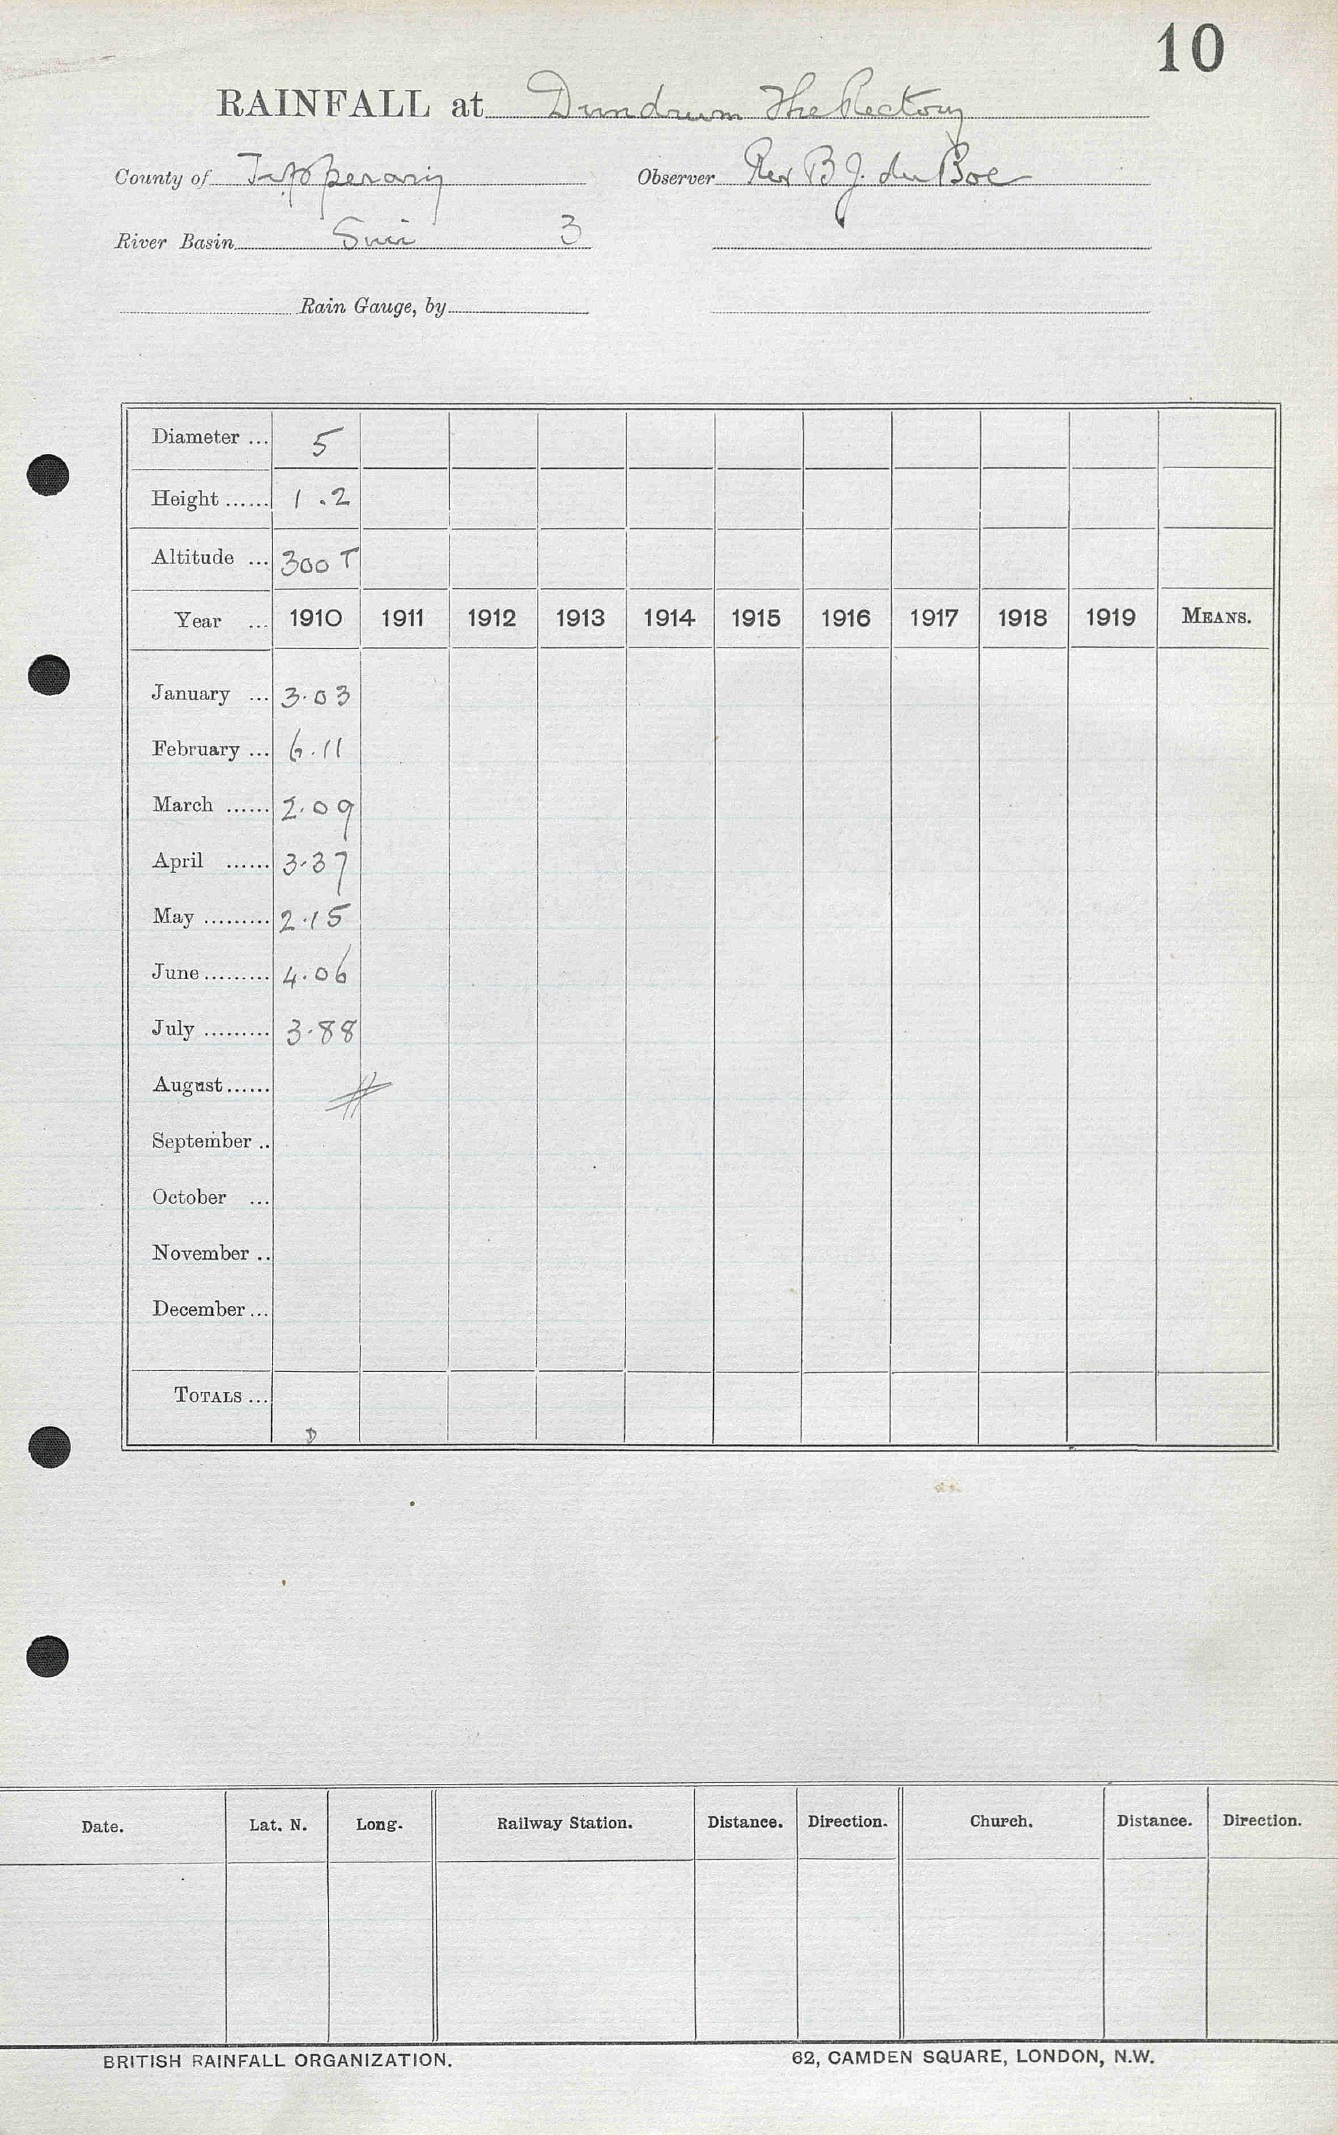 10
RAINFALL at Dundrum The Rectory
County of Tipperary Observer Rev B J. du Boe
River Basin Suir 3
Rain Gauge, by
Diameter ... 5
Height ...... 1.2
Altitude ... 300 T
Year ... 1910 1911 1912 1913 1914 1915 1916 1917 1918 1919 MEANS.
January ... 3.03
February ... 6.11
March ...... 2.09
April ...... 3.37
May ......... 2.15
June ......... 4.06
July ......... 3.88
August ......
September ..
October ...
November ..
December ...
TOTALS ...
D
Date. Lat. N. Long. Railway Station. Distance. Direction. Church. Distance. Direction.
BRITISH RAINFALL ORGANIZATION. 62, CAMDEN SQUARE, LONDON, N.W.